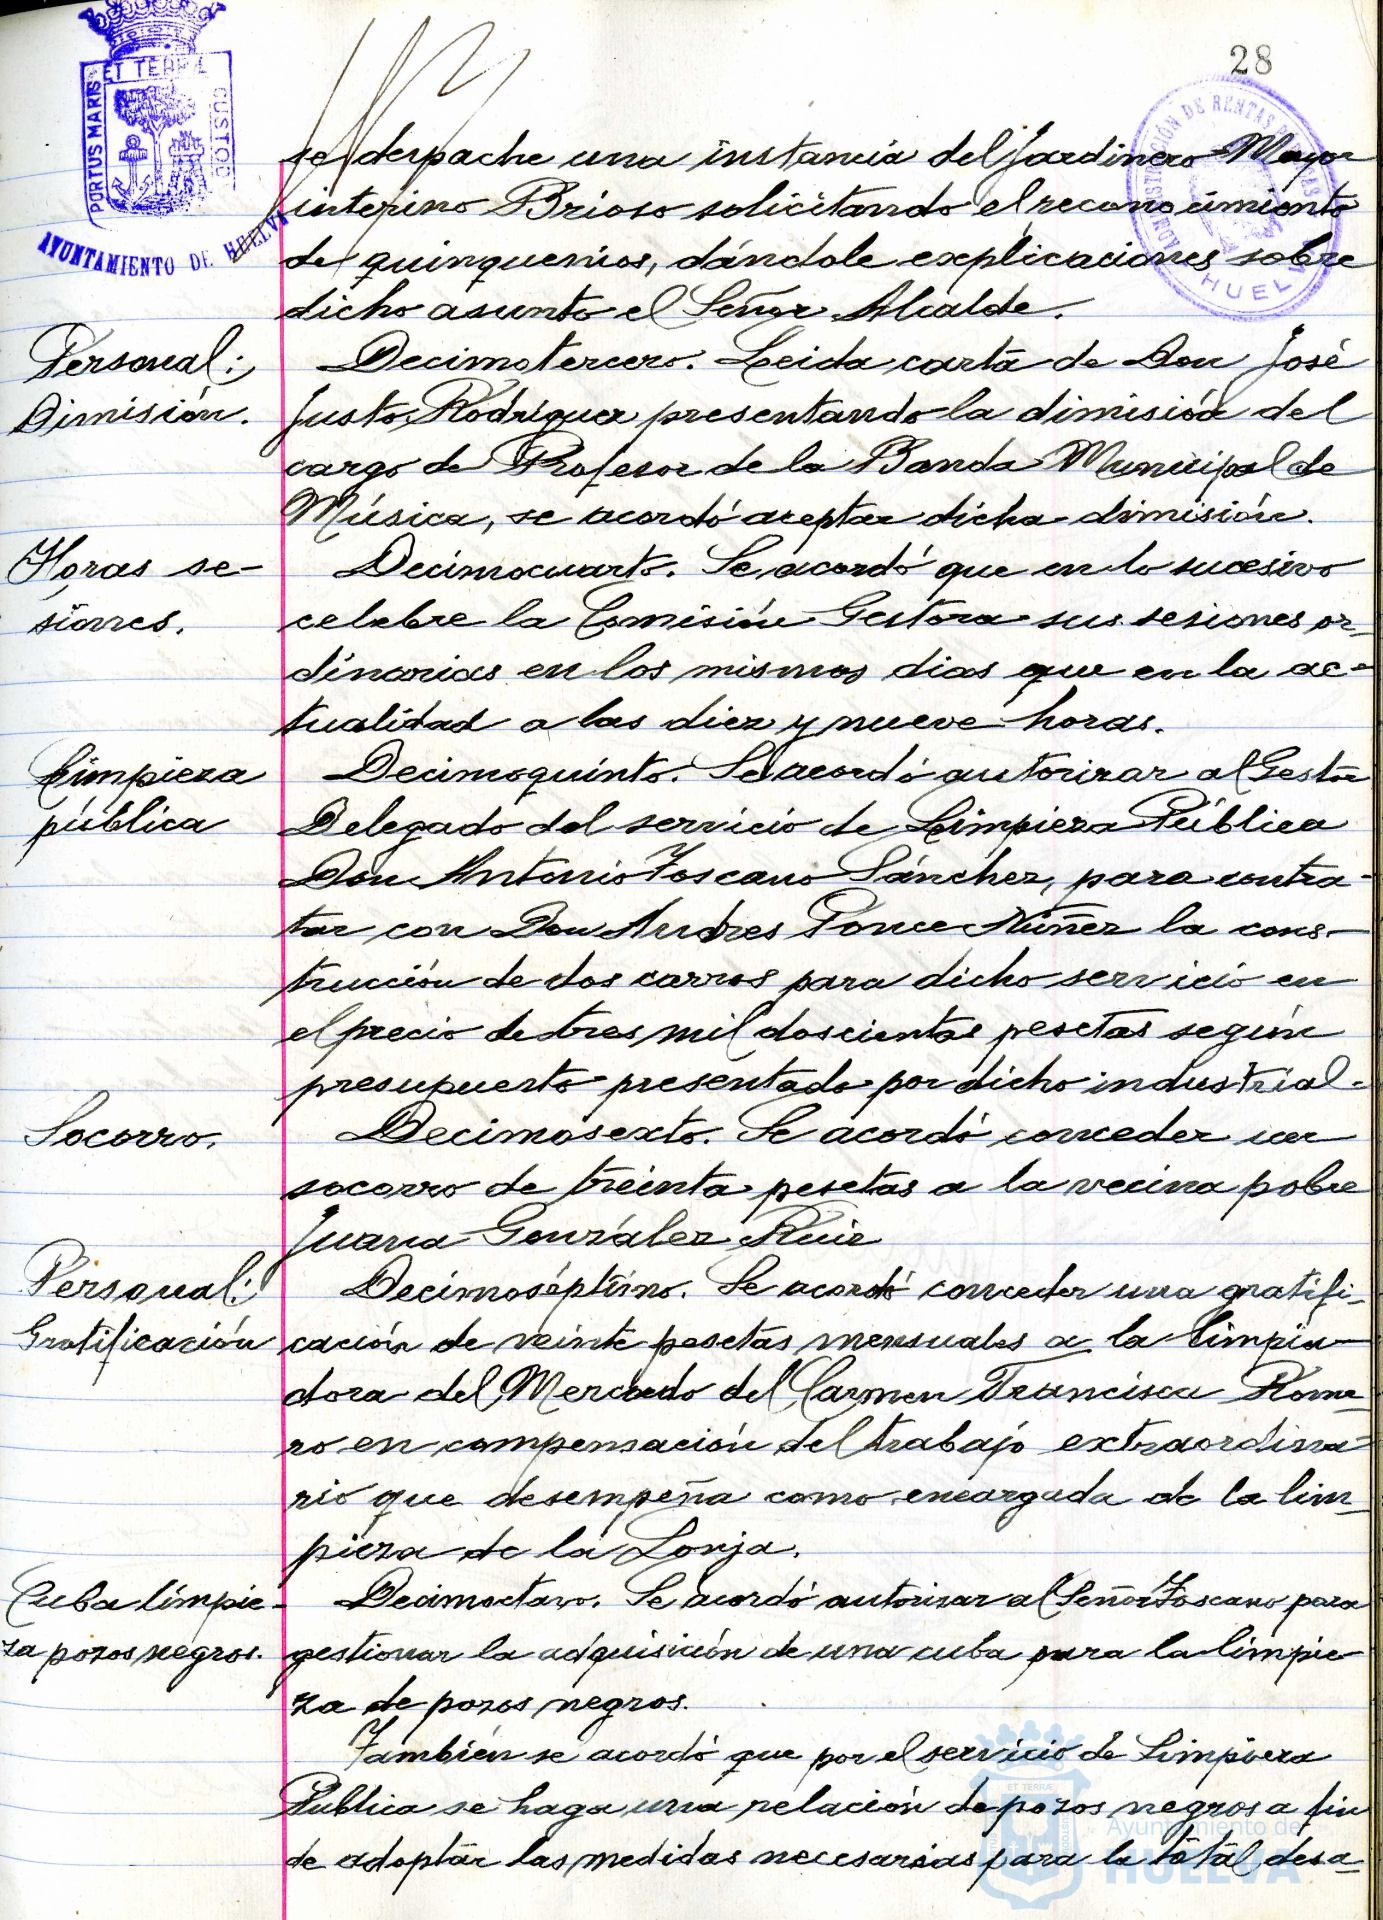 28
PORTUS MARIS
ET TERRÆ
CUSTOD
AYUNTAMIENTO DE HUELVA
ADMINISTRACIÓN DE RENTAS
HUELV
se despache una instancia del Jardinero Mayor
interino Brioso solicitando el reconocimiento
de quinquenios, dándole explicaciones sobre
dicho asunto el Señor Alcalde.
Personal:
Dimisión.
Decimotercero. Leida carta de Don José
Justo Rodríguez presentando la dimisión del
cargo de Profesor de la Banda Municipal de
Música, se acordó aceptar dicha dimisión.
Horas se-
siones.
Decimocuarto. Se acordó que en lo sucesivo
celebre la Comisión Gestora sus sesiones or-
dinarias en los mismos dias que en la ac-
tualidad a las diez y nueve horas.
Limpieza
pública
Decimoquinto. Se acordó autorizar al Gestor
Delegado del servicio de Limpieza Pública
Don Antonio Toscano Sánchez, para contra-
tar con Don Andres Ponce Núñez la cons-
trucción de dos carros para dicho servicio en
el precio de tres mil doscientas pesetas según
presupuesto presentado por dicho industrial.
Socorro.
Decimosexto. Se acordó conceder un
socorro de treinta pesetas a la vecina pobre
Juana González Ruiz
Personal:
Gratificación
Decimoséptimo. Se acordó conceder una gratifi-
cación de veinte pesetas mensuales a la limpia-
dora del Mercado del Carmen Francisca Rome-
ro en compensación del trabajo extraordina-
rio que desempeña como encargada de la lim-
pieza de la Lonja.
Cuba limpie-
za pozos negros.
Decimoctavo. Se acordó autorizar al Señor Toscano para
gestionar la adquisición de una cuba para la limpie-
za de pozos negros.
También se acordó que por el servicio de Limpieza
Publica se haga una relación de pozos negros a fin
de adoptar las medidas necesarias para la total desa-
Ayuntamiento de
HUELVA